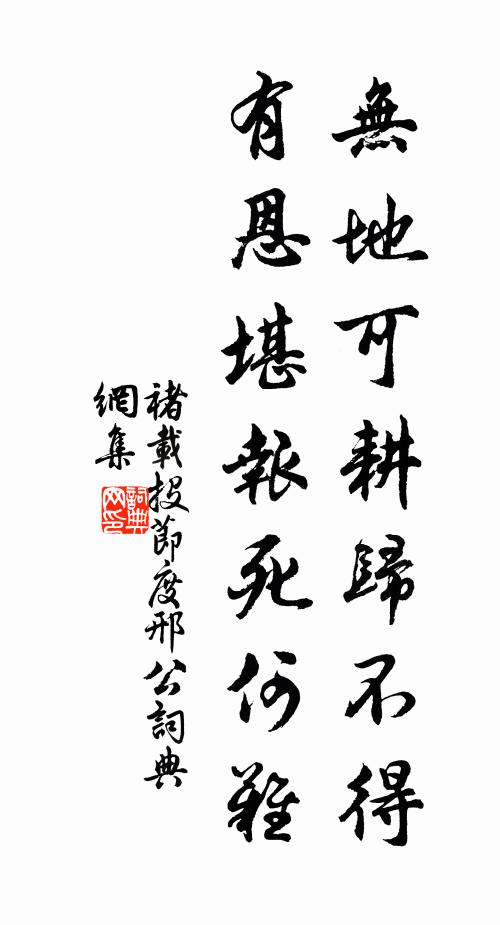 無地可耕歸不得
有恩堪報死何難
褚載投節度邢公詞典
網集
詞典
网印